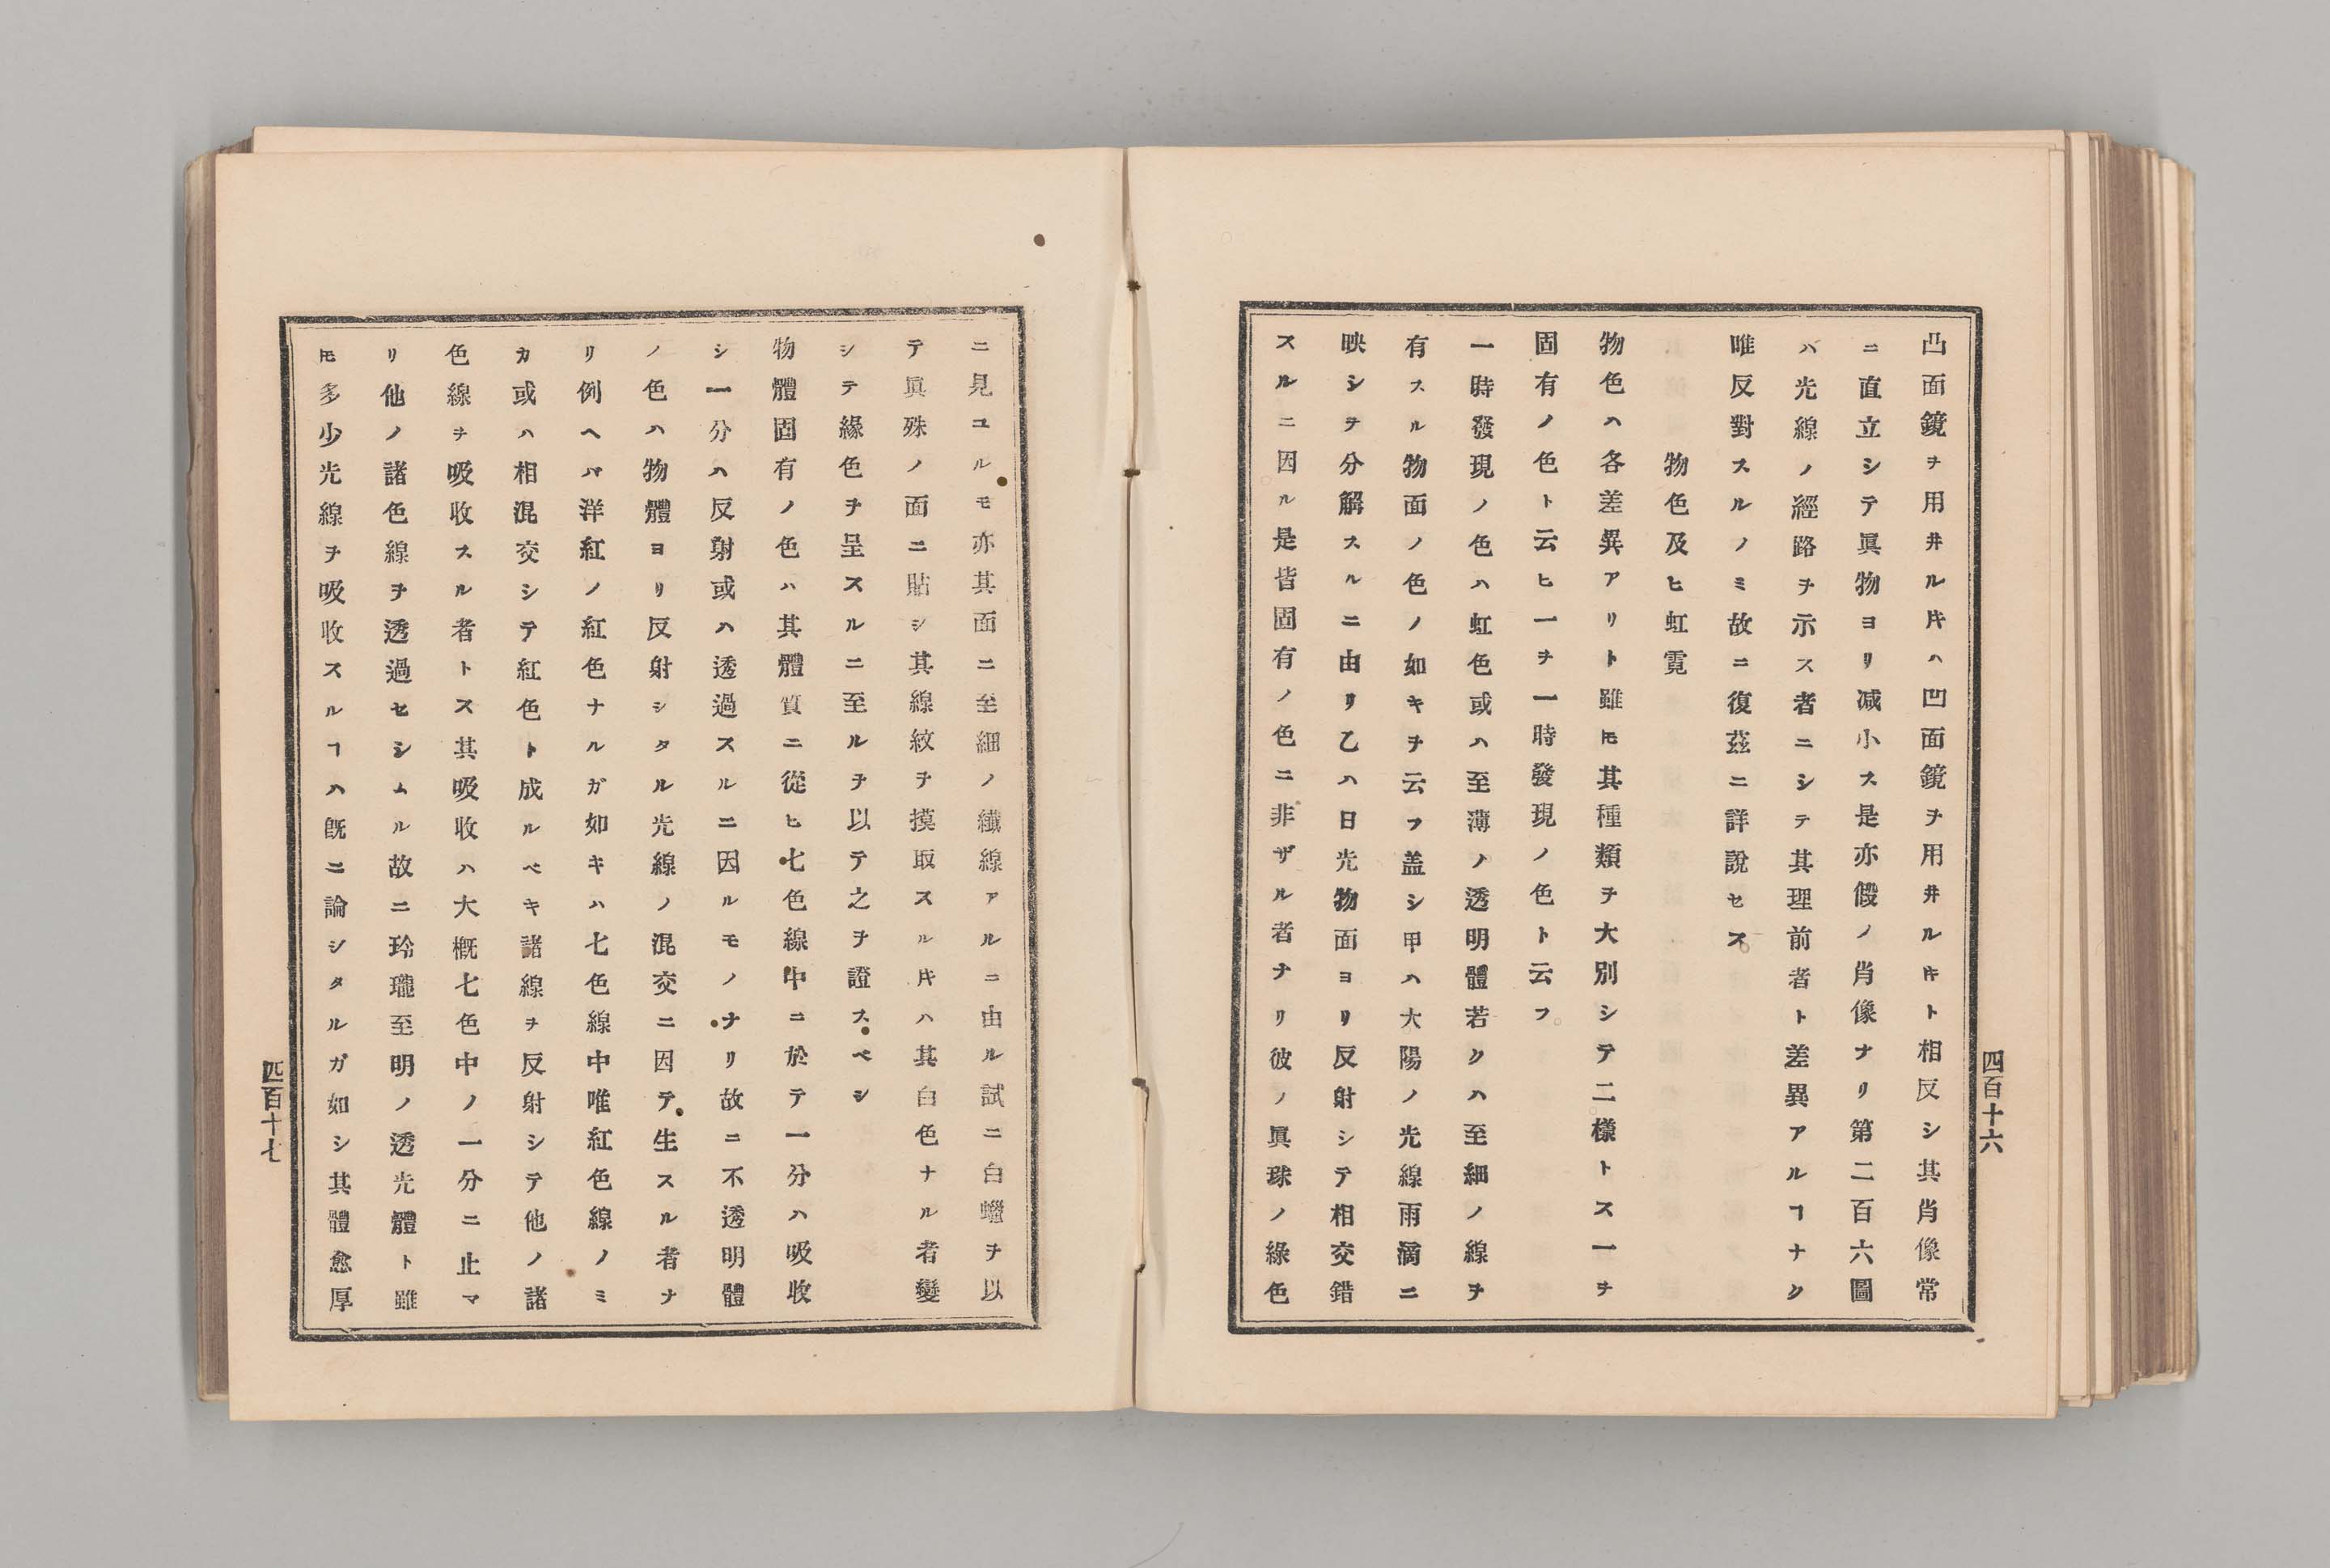 凸面鏡ヲ用井ル𪜈ハ凹面鏡ヲ用井ルキト相反シ其肖像常
ニ直立シテ眞物ヨリ减小ス是亦假ノ肖像ナリ第二百六圖
ハ光線ノ經路ヲ示ス者ニシテ其理前者ト差異アルヿナク
唯反對スルノミ故ニ復茲ニ詳說セス
物色及ヒ虹霓
物色ハ各差異アリト雖𪜈其種類ヲ大別シテ二樣トス一ヲ
固有ノ色ト云ヒ一ヲ一時發現ノ色ト云フ
一時發現ノ色ハ虹色或ハ至薄ノ透明體若クハ至細ノ線ヲ
有スル物面ノ色ノ如キヲ云フ盖シ甲ハ大陽ノ光線雨滴ニ
映シヲ分解スルニ由リ乙ハ日光物面ヨリ反射シテ相交錯
スルニ因ル是皆固有ノ色ニ非ザル者ナリ彼ノ眞珠ノ綠色
四百十六
ニ見ユルモ亦其面ニ至細ノ纖線アルニ由ル試ニ白蠟ヲ以
テ眞殊ノ面ニ貼シ其線紋ヲ摸取スル𪜈ハ其白色ナル者變
シテ緣色ヲ呈スルニ至ルヲ以テ之ヲ證スベシ
物體固有ノ色ハ其體質ニ從ヒ七色線中ニ於テ一分ハ吸收
シ一分ハ反射或ハ透過スルニ因ルモノナリ故ニ不透明體
ノ色ハ物體ヨリ反射シタル光線ノ混交ニ因テ生スル者ナ
リ例ヘバ洋紅ノ紅色ナルガ如キハ七色線中唯紅色線ノミ
カ或ハ相混交シテ紅色ト成ルベキ諸線ヲ反射シテ他ノ諸
色線ヲ吸收スル者トス其吸收ハ大概七色中ノ一分ニ止マ
リ他ノ諸色線ヲ透過セシムル故ニ玲瓏至明ノ透光體ト雖
𪜈多少光線ヲ吸收スルヿハ旣ニ論シタルガ如シ其體愈厚
四百十七